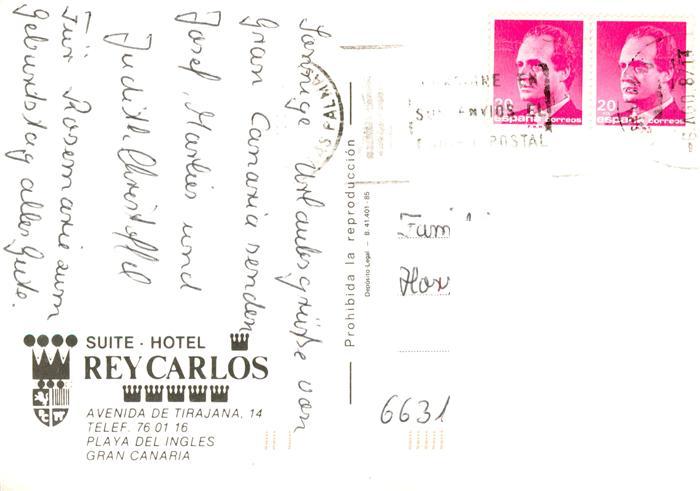 Sonnige Urlaubsgrüße von
Gran Canaria senden
Josef, Marlies und
Judith Christoffel
Für Rosemarie zum
Geburtstag alles Gute.
SUITE - HOTEL
REY CARLOS
AVENIDA DE TIRAJANA, 14
TELEF. 76 01 16
PLAYA DEL INGLES
GRAN CANARIA
Prohibida la reproducción
Depósito Legal - B. 41.401-85
20
españa correos
20
españa correos
ENVIOS EL
POSTAL
PALMAS
Fami
6631